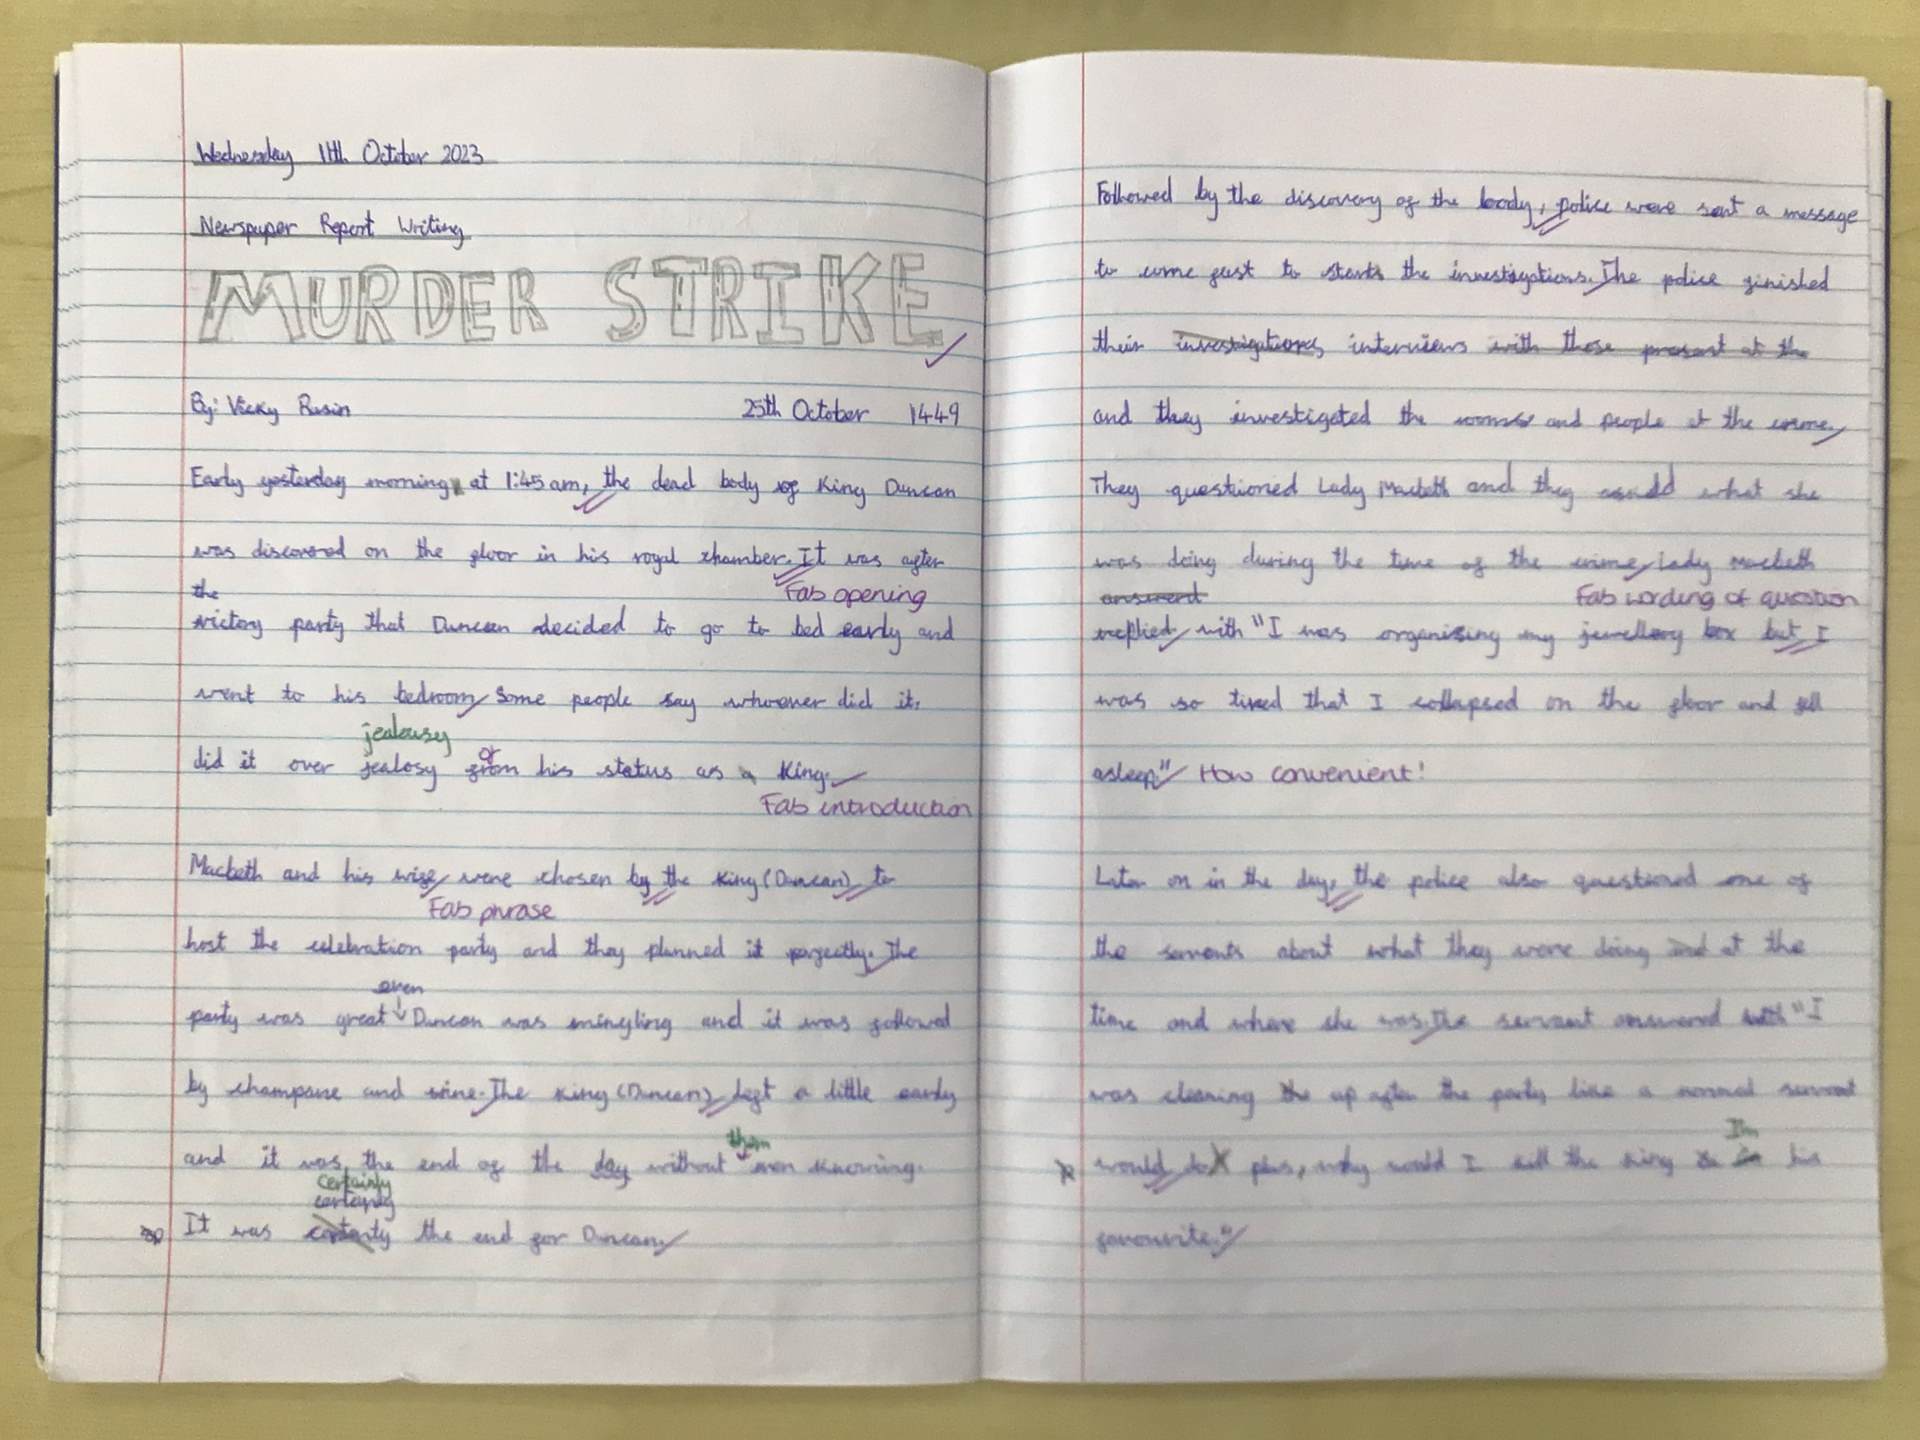 Wednesday 11th October 2023
Newspaper Report Writing
MURDER STRIKE
By: Vicky Rusin 25th October 1449
Early yesterday morning at 1:45am, the dead body of King Duncan
was discovered on the floor in his royal chamber. It was after
Fab opening
the
victory party that Duncan decided to go to bed early and
went to his bedroom. Some people say whoever did it,
jealousy
of
did it over jealosy from his status as a King.
Fab introduction
Macbeth and his wife, were chosen by the King (Duncan), to
Fab phrase
host the celebration party and they planned it perfectly. The
even
party was great Duncan was mingling and it was followed
by champane and wine. The King (Duncan), left a little early
them
and it was the end of the day without even knowing.
certainly
sp It was the end for Duncan.
Followed by the discovery of the body, police were sent a message
to come fast to start the investigations. The police finished
their investigations, interviews with those present at the
and they investigated the rooms and people at the crime.
They questioned Lady Macbeth and they asked what she
was doing during the time of the crime, Lady Macbeth
answered
Fab wording of question
replied, with "I was organising my jewellery box but I
was so tired that I collapsed on the floor and fell
asleep" How convenient!
Later on in the day, the police also questioned one of
the servents about what they were doing and at the
time and where she was. The servant answered with "I
was cleaning the up after the party like a normal servant
I'm
would do plus, why would I kill the King his
favourite."